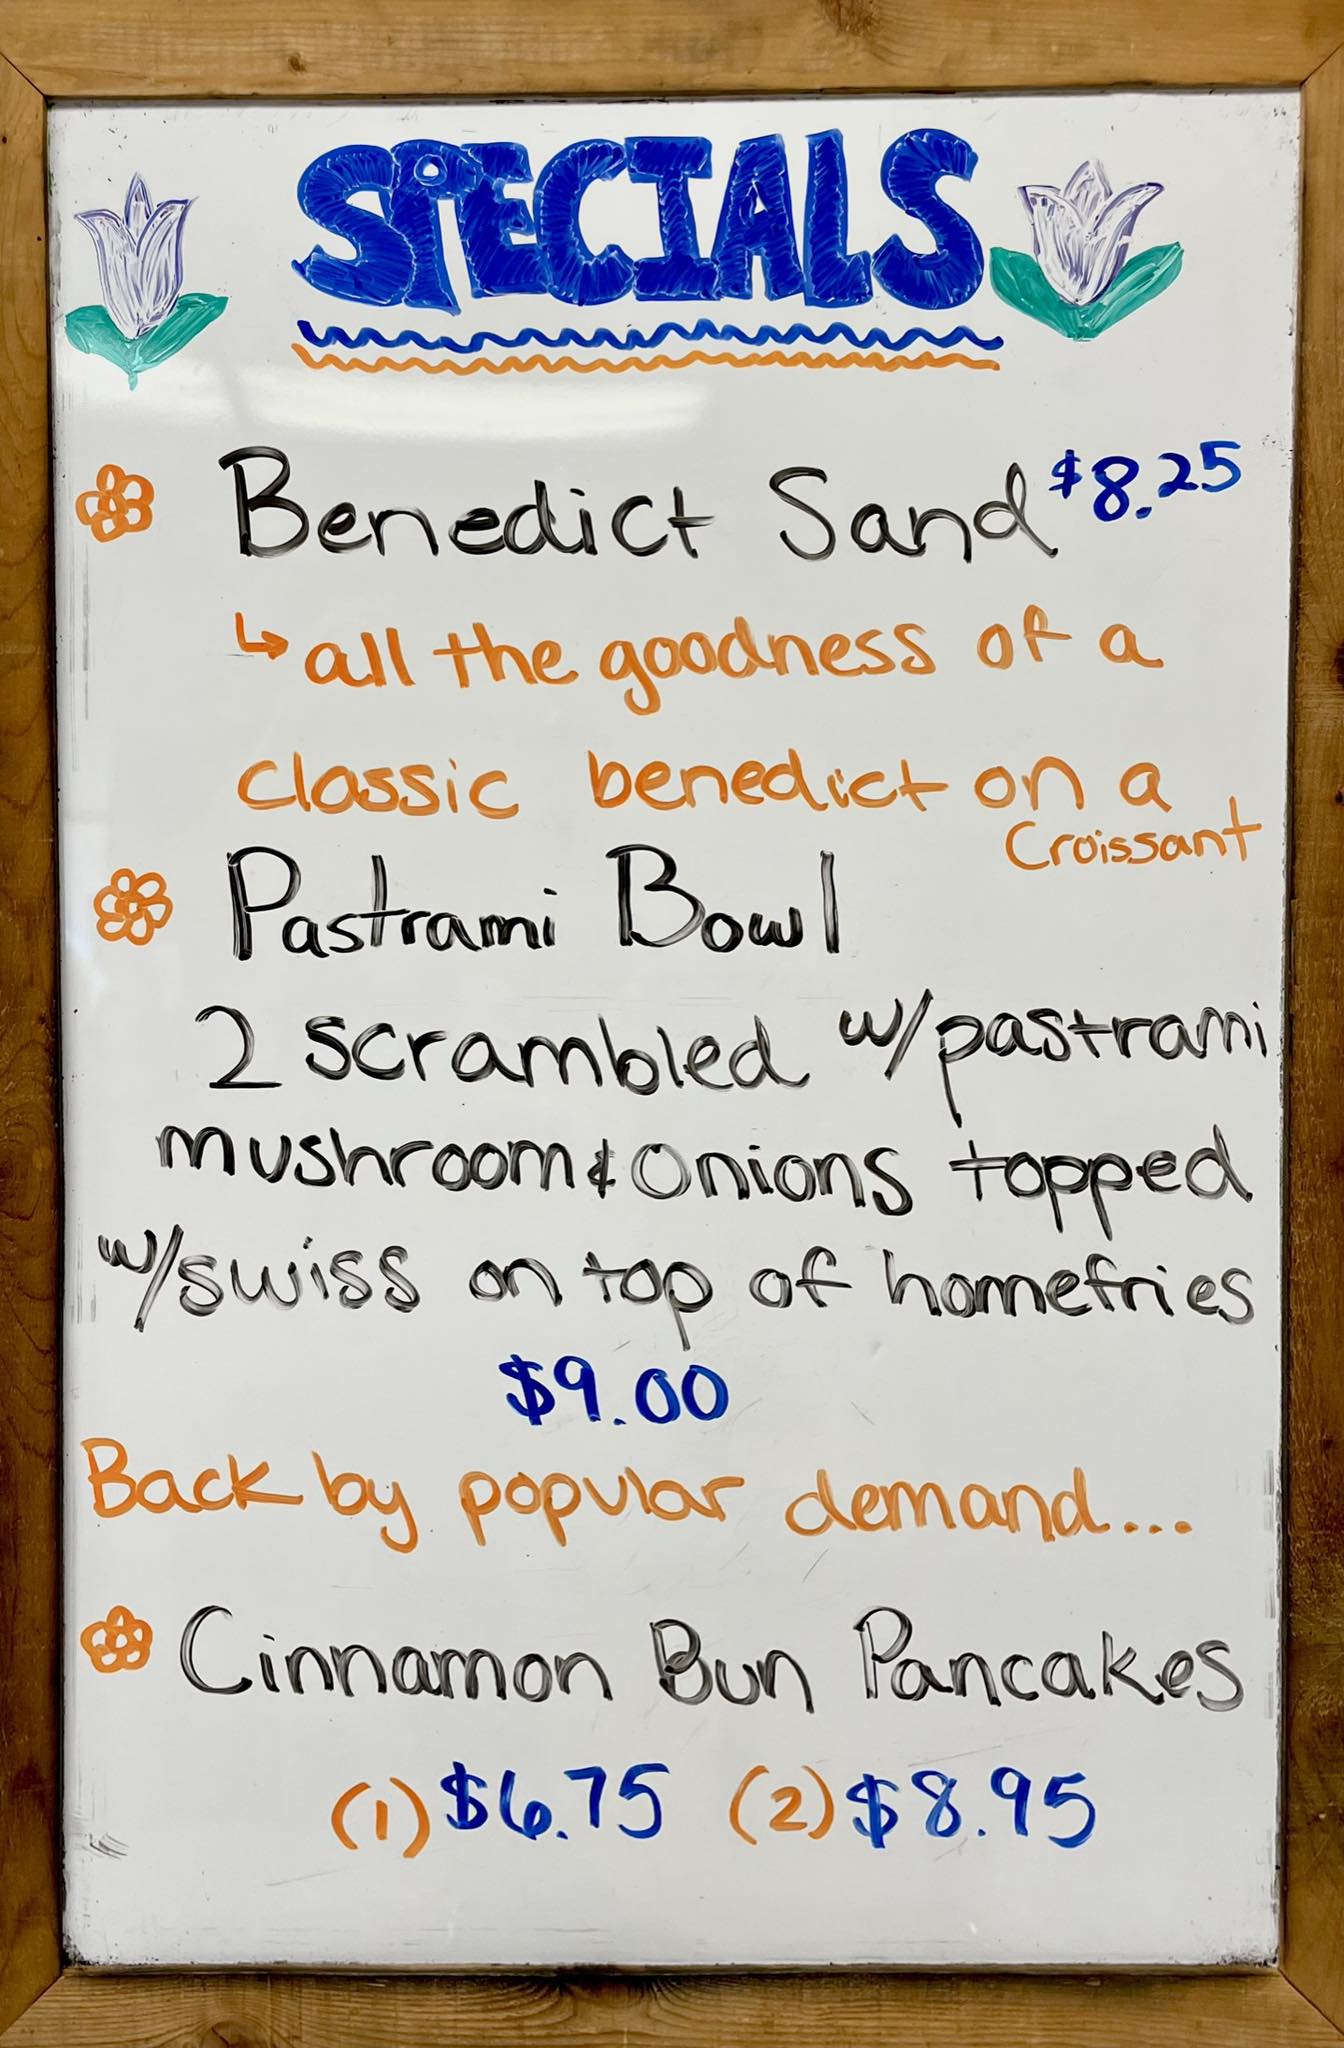 SPECIALS
Benedict Sand $8.25
↳ all the goodness of a
classic benedict on a
Croissant
Pastrami Bowl
2 scrambled w/pastrami
mushroom & onions topped
w/swiss on top of homefries
$9.00
Back by popular demand...
Cinnamon Bun Pancakes
(1) $6.75 (2) $8.95